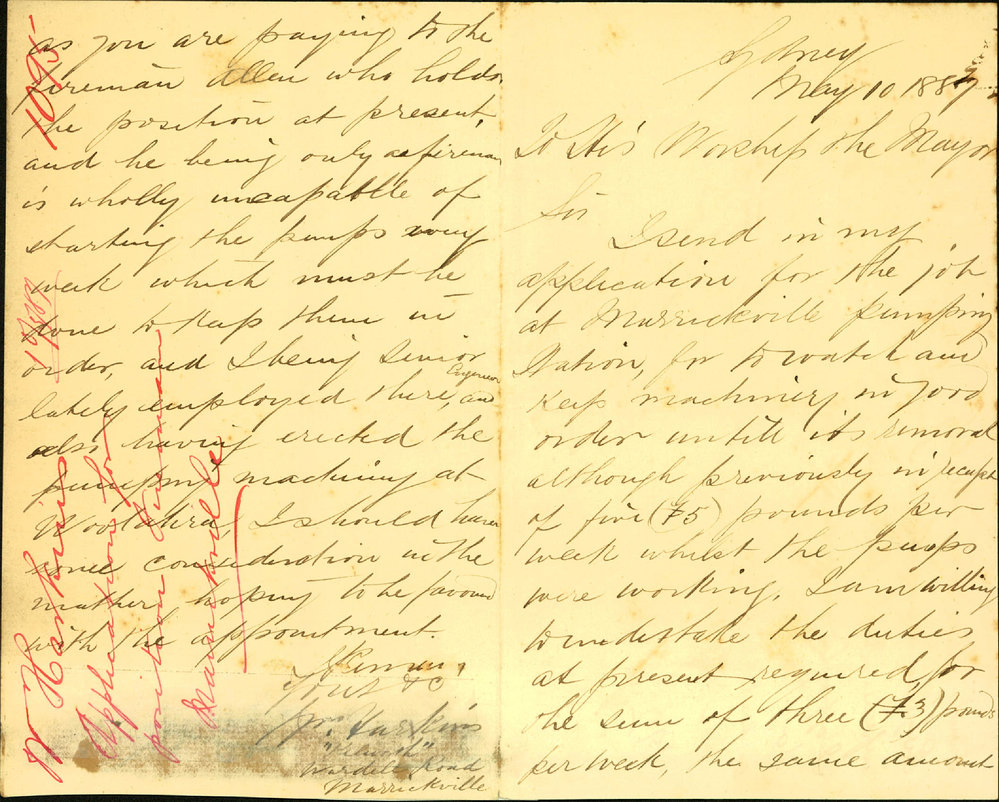 Sydney
May 10 1887
To His Worship the Mayor
Sir
I send in my
application for the job
at Marrickville pumping
Station, for to watch and
keep machinery in good
order untill its removal
although previously in receipt
of five (£5) pounds per
week whilst the pumps
were working, I am willing
to undertake the duties
at present required for
the sum of three (£3) pounds
per week, the same amount
as you are paying to the
fireman Allen who holds
the position at present,
and he being only a fireman
is wholly uncapable of
starting the pumps every
week which must be
done to keep them in
order, and I being Senior Engineer
lately employed there, and
also having erected the
pumping machinery at
Woollahra I should have
some consideration in the
matter, hoping to be favourd
with the appointment.
I Remain,
Yours &c
Wm. Harkins
Wardell Road
Marrickville
1095
1887
W Harkins
Application for
position Fireman
Marrickville